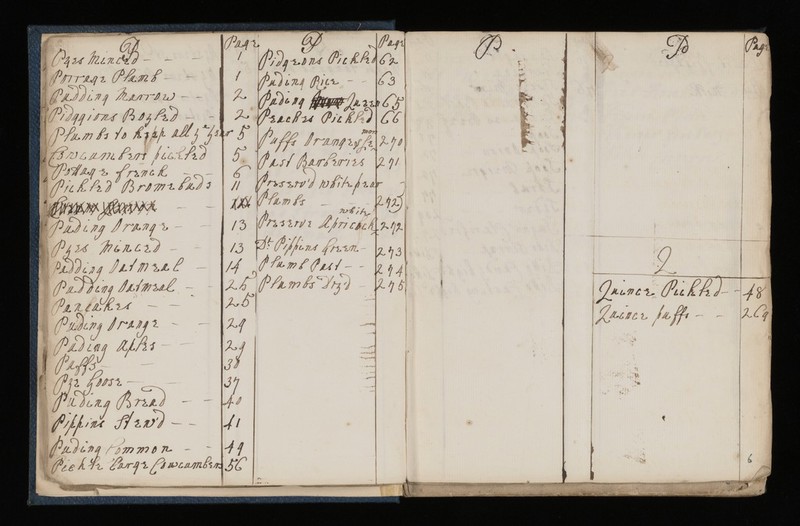 P Page
Pyes Minced - - 1
Porrage Plumb - 1
Pudding Marrow - - 2
Pidgions Boyled - 2
Plumbs to keep all ye year 5
Cowcumbers pickled 5
Pottage french - 6
Pickled Broomebuds 11
Puding Orange - 13
Pyes Minced - 13
Pudding Oatmeal - 14
Pudding Oatmeal - 26
Pancakes - - 26
Puding Orange - - 29
Puding Aples - - 29
Puffs - 38
Pye Goose - - 37
Puding Bread - - 40
Pippins Stew'd - - 41
Puding Common - - 49
Pickle Large Cowcumbers 56
P Page
Pidgeons Pickled 62
Puding Rice - - 63
Puding Queen 65
Peaches Pickled 66
Puffs Orange &c 270
Past Barberries 271
Preserv'd white pear
Plumbs - - 272
Preserve white Apricock 272
Do Pippins Green - 273
Plumb Past - - 274
Plumbs 275
P
P Page
Q
Quince Pickled - - 48
Quince puffs - - 269
6